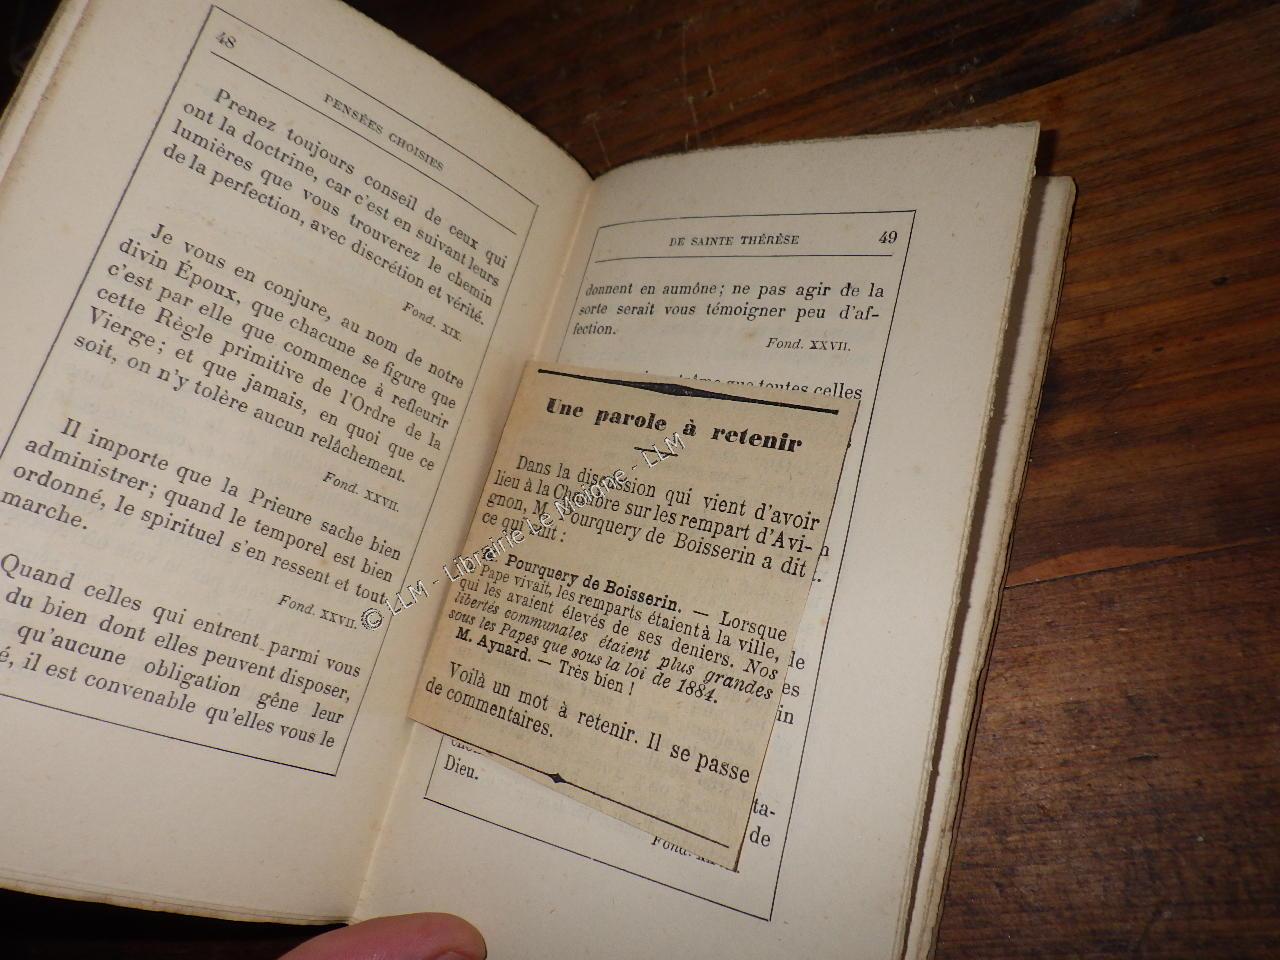 48
PENSÉES CHOISIES
Prenez toujours conseil de ceux qui
ont la doctrine, car c'est en suivant leurs
lumières que vous trouverez le chemin
de la perfection, avec discrétion et vérité.
Fond. XIX.
Je vous en conjure, au nom de notre
divin Époux, que chacune se figure que
c'est par elle que commence à refleurir
cette Règle primitive de l'Ordre de la
Vierge; et que jamais, en quoi que ce
soit, on n'y tolère aucun relâchement.
Fond. XXVII.
Il importe que la Prieure sache bien
administrer; quand le temporel est bien
ordonné, le spirituel s'en ressent et tout
marche.
Fond. XXVII.
Quand celles qui entrent parmi vous
du bien dont elles peuvent disposer,
qu'aucune obligation gêne leur
é, il est convenable qu'elles vous le
DE SAINTE THÉRÈSE
49
donnent en aumône; ne pas agir de la
sorte serait vous témoigner peu d'af-
fection.
Fond. XXVII.
que toutes celles
Une parole à retenir
Dans la discussion qui vient d'avoir
lieu à la Chambre sur les rempart d'Avi-
gnon, M. Pourquery de Boisserin a dit
ce qui suit :
M. Pourquery de Boisserin. — Lorsque
le Pape vivait, les remparts étaient à la ville,
qui les avaient élevés de ses deniers. Nos
libertés communales étaient plus grandes
sous les Papes que sous la loi de 1884.
M. Aynard. — Très bien !
Voilà un mot à retenir. Il se passe
de commentaires.
n
de
es
in
Dieu.
ta-
de
Fond.
© LLM - Librairie Le Moigne - LLM